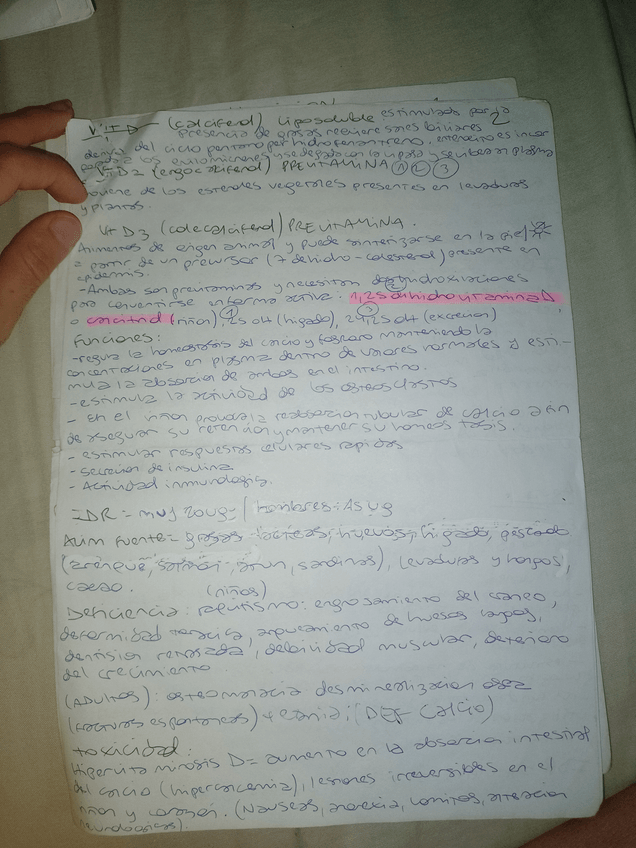 VIT D → (calciferol) liposoluble estimulada por la
presencia de grasas requiere sales biliares
deriva del ciclo pentano per hidrofenantreno.
a los quilomicrones y se degrada con la lipasa y se libera plasma
Vit D2 (ergocalciferol) PREVITAMINA 1 2 3
proviene de los esteroles vegetales presentes en levaduras
y plantas.
Vit D3 (colecalciferol) PREVITAMINA.
Alimentos de origen animal y puede sintetizarse en la piel
a partir de un precursor (7 dehidro-colesterol) presente en
epidermis.
- Ambas son previtaminas y necesitan dos hidroxilaciones
para convertirse en forma activa. 1,25 dihidrovitamina D
o calcitriol (riñon), 25 OH (higado), 24,25 OH (excrecion)
Funciones:
- regula la homeostasis del calcio y fosforo manteniendo la
concentraciones en plasma dentro de valores normales y esti-
mula la absorcion de ambos en el intestino.
- estimula la actividad de los osteoclastos
- En el riñon provoca la reabsorcion tubular de calcio a fin
de asegurar su retencion y mantener su homeostasis.
- estimular respuestas celulares rapidas
- Secrecion de insulina
- Actividad inmunologia.
IDR = muj 20ug / hombres: 15 ug
Alim Fuente = grasas lacteas, huevos, higado, pescado
(arenque, salmon, atun, sardinas), levaduras y hongos,
cacao. (niños)
Deficiencia: raquitismo: engrosamiento del craneo,
deformidad toracica, arqueamiento de huesos largos,
dentision retrasada, debilidad muscular, deterioro
del crecimiento
(ADULTOS): osteomalacia desmineralizacion osea
(fracturas espontaneas) tetania; (DEF CALCIO)
toxicidad:
Hipervitaminosis D = aumento en la absorcion intestinal
del calcio (hipercalcemia), lesiones irreversibles en el
riñon y corazon. (Nauseas, anorexia, vomitos, alteracion
neurologicas).